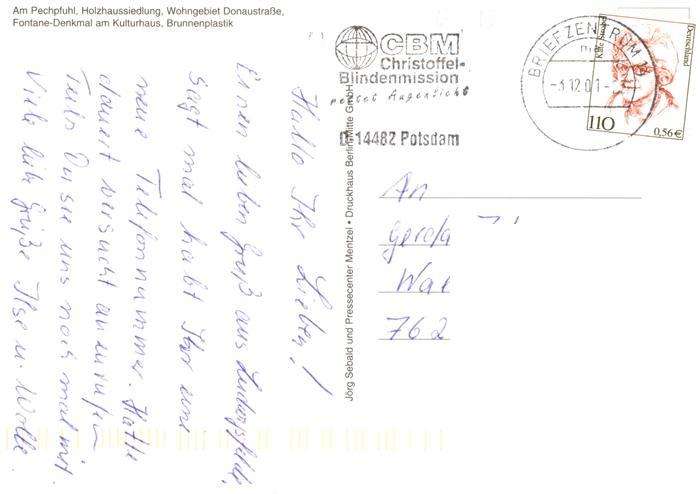 Am Pechpfuhl, Holzhaussiedlung, Wohngebiet Donaustraße,
Fontane-Denkmal am Kulturhaus, Brunnenplastik
CBM
Christoffel-
Blindenmission
rettet Augenlicht
D-14482 Potsdam
BRIEFZENTRUM
-3.12.01-
Deutschland
110
0,56€
Jörg Sebald und Pressecenter Mentzel • Druckhaus Berlin-Mitte GmbH
Hallo Ihr Lieben!
Einen lieben Gruß aus Ludwigsfelde,
sagt mal habt Ihr eine
neue Telefonnummer. Hatte
dauert versucht anzurufen
Teile Du sie uns noch mal mit.
Viele liebe Grüße Ilse u. Wolle.
An
Gerda
Wae
762